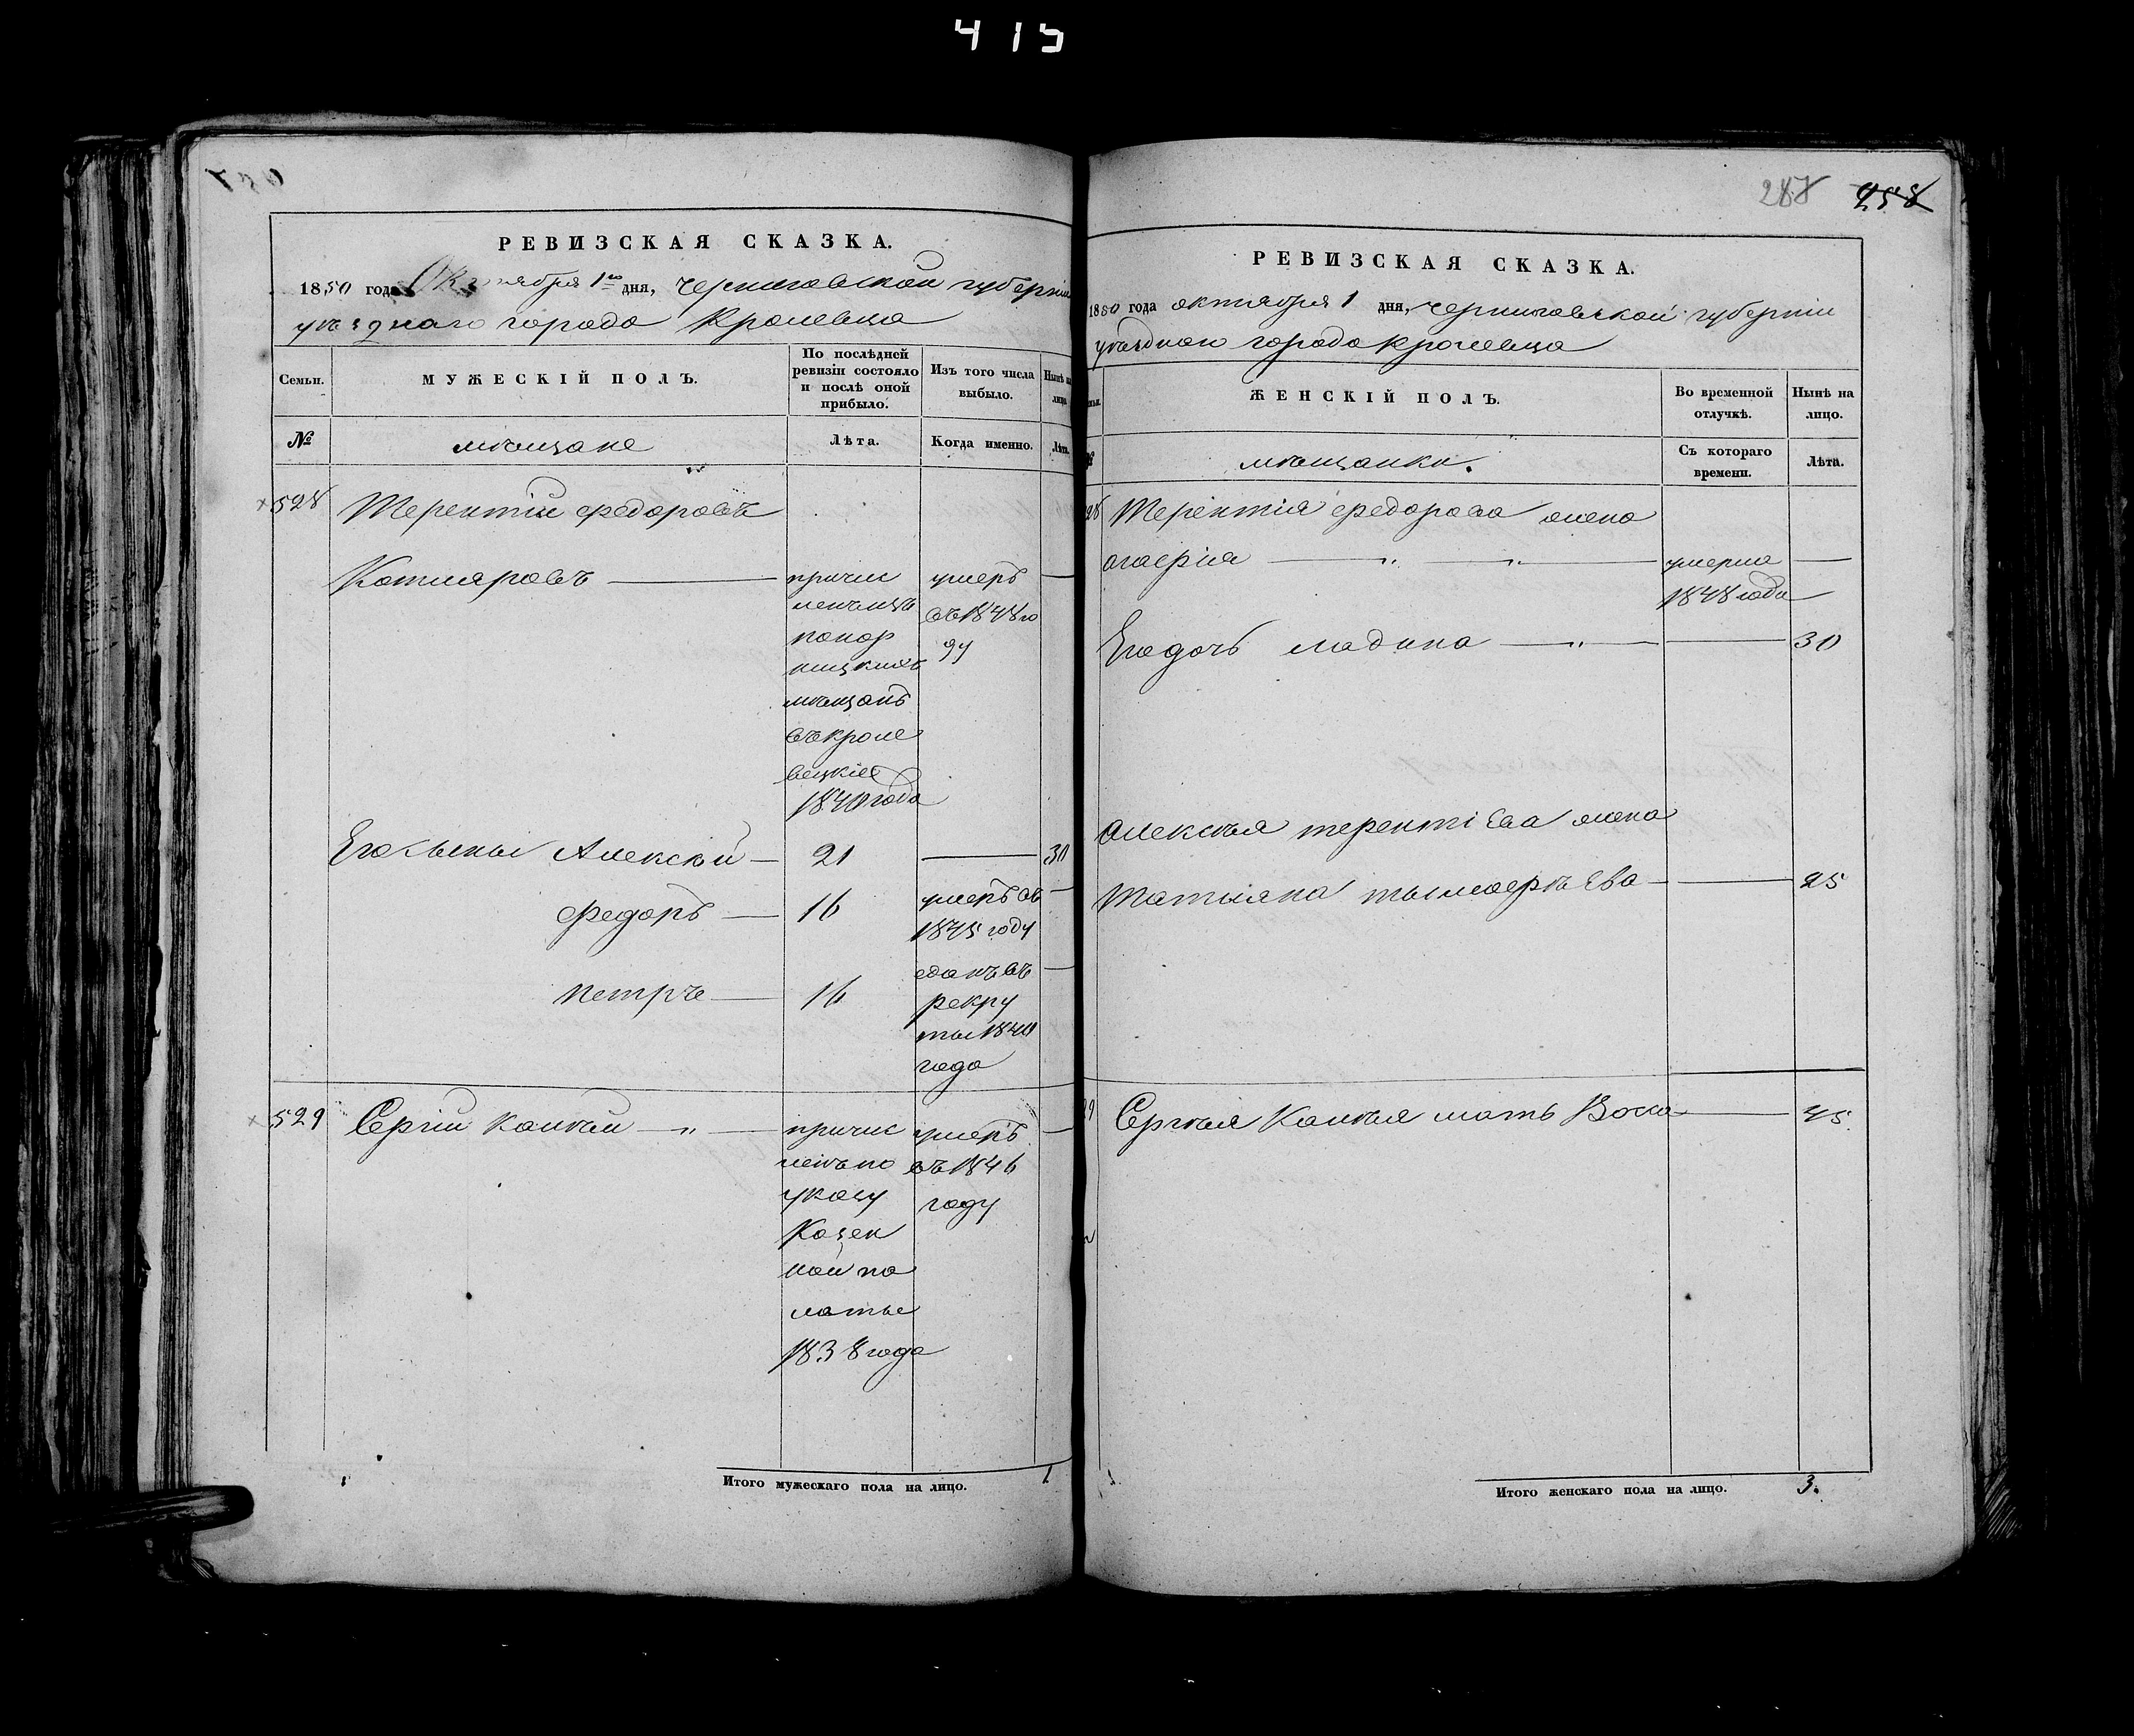 415
РЕВИЗСКАЯ СКАЗКА.
1850 года Октября 1го дня, Черниговской губерніи
уѣзднаго города Кролевца
Семьи.
МУЖЕСКІЙ ПОЛЪ.
По послѣдней ревизіи состояло и послѣ оной прибыло.
Изъ того числа выбыло.
Нынѣ на лицо.
№
мѣщане
Лѣта.
Когда именно.
Лѣта.
528 Терентій Федоровъ
Котляровъ — причис умеръ —
ленъ изъ въ 1848 го
конор ду
ницкихъ
мѣщанъ
въ кроле
вецкіе
1840 года
Его сыны Алексѣй — 21 — 30
Федоръ — 16 умеръ въ —
1845 году
Петръ — 16 сданъ въ —
рекру
ты 1840
года
529 Сергій — " — причис умеръ —
ленъ по въ 1846
указу году
Казен
ной па
латы
1838 года
Итого мужескаго пола на лицо. 1
288 258
РЕВИЗСКАЯ СКАЗКА.
1850 года октября 1 дня, Черниговской губерніи
уѣздного города Кролевца
ЖЕНСКІЙ ПОЛЪ.
Во временной отлучкѣ.
Нынѣ на лицо.
мѣщанки.
Съ котораго времени.
Лѣта.
28 Терентія Федорова жена
— " — " — умерла —
1848 года
Его дочь — " — — 30
Алексѣя Терентіева жена
Татьяна — — 25
29 Сергѣя мать — 45
Итого женскаго пола на лицо. 3.